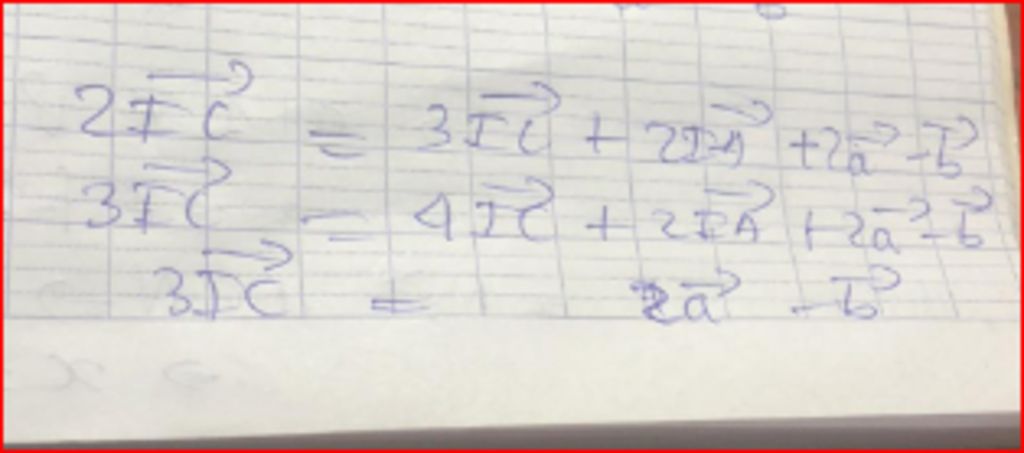 2\overrightarrow{IC} = 3\overrightarrow{IC} + 2\overrightarrow{IA} + 2\overrightarrow{a} - \overrightarrow{b}
3\overrightarrow{IC} = 4\overrightarrow{IC} + 2\overrightarrow{IA} + 2\overrightarrow{a} - \overrightarrow{b}
3\overrightarrow{IC} = 2\overrightarrow{a} - \overrightarrow{b}